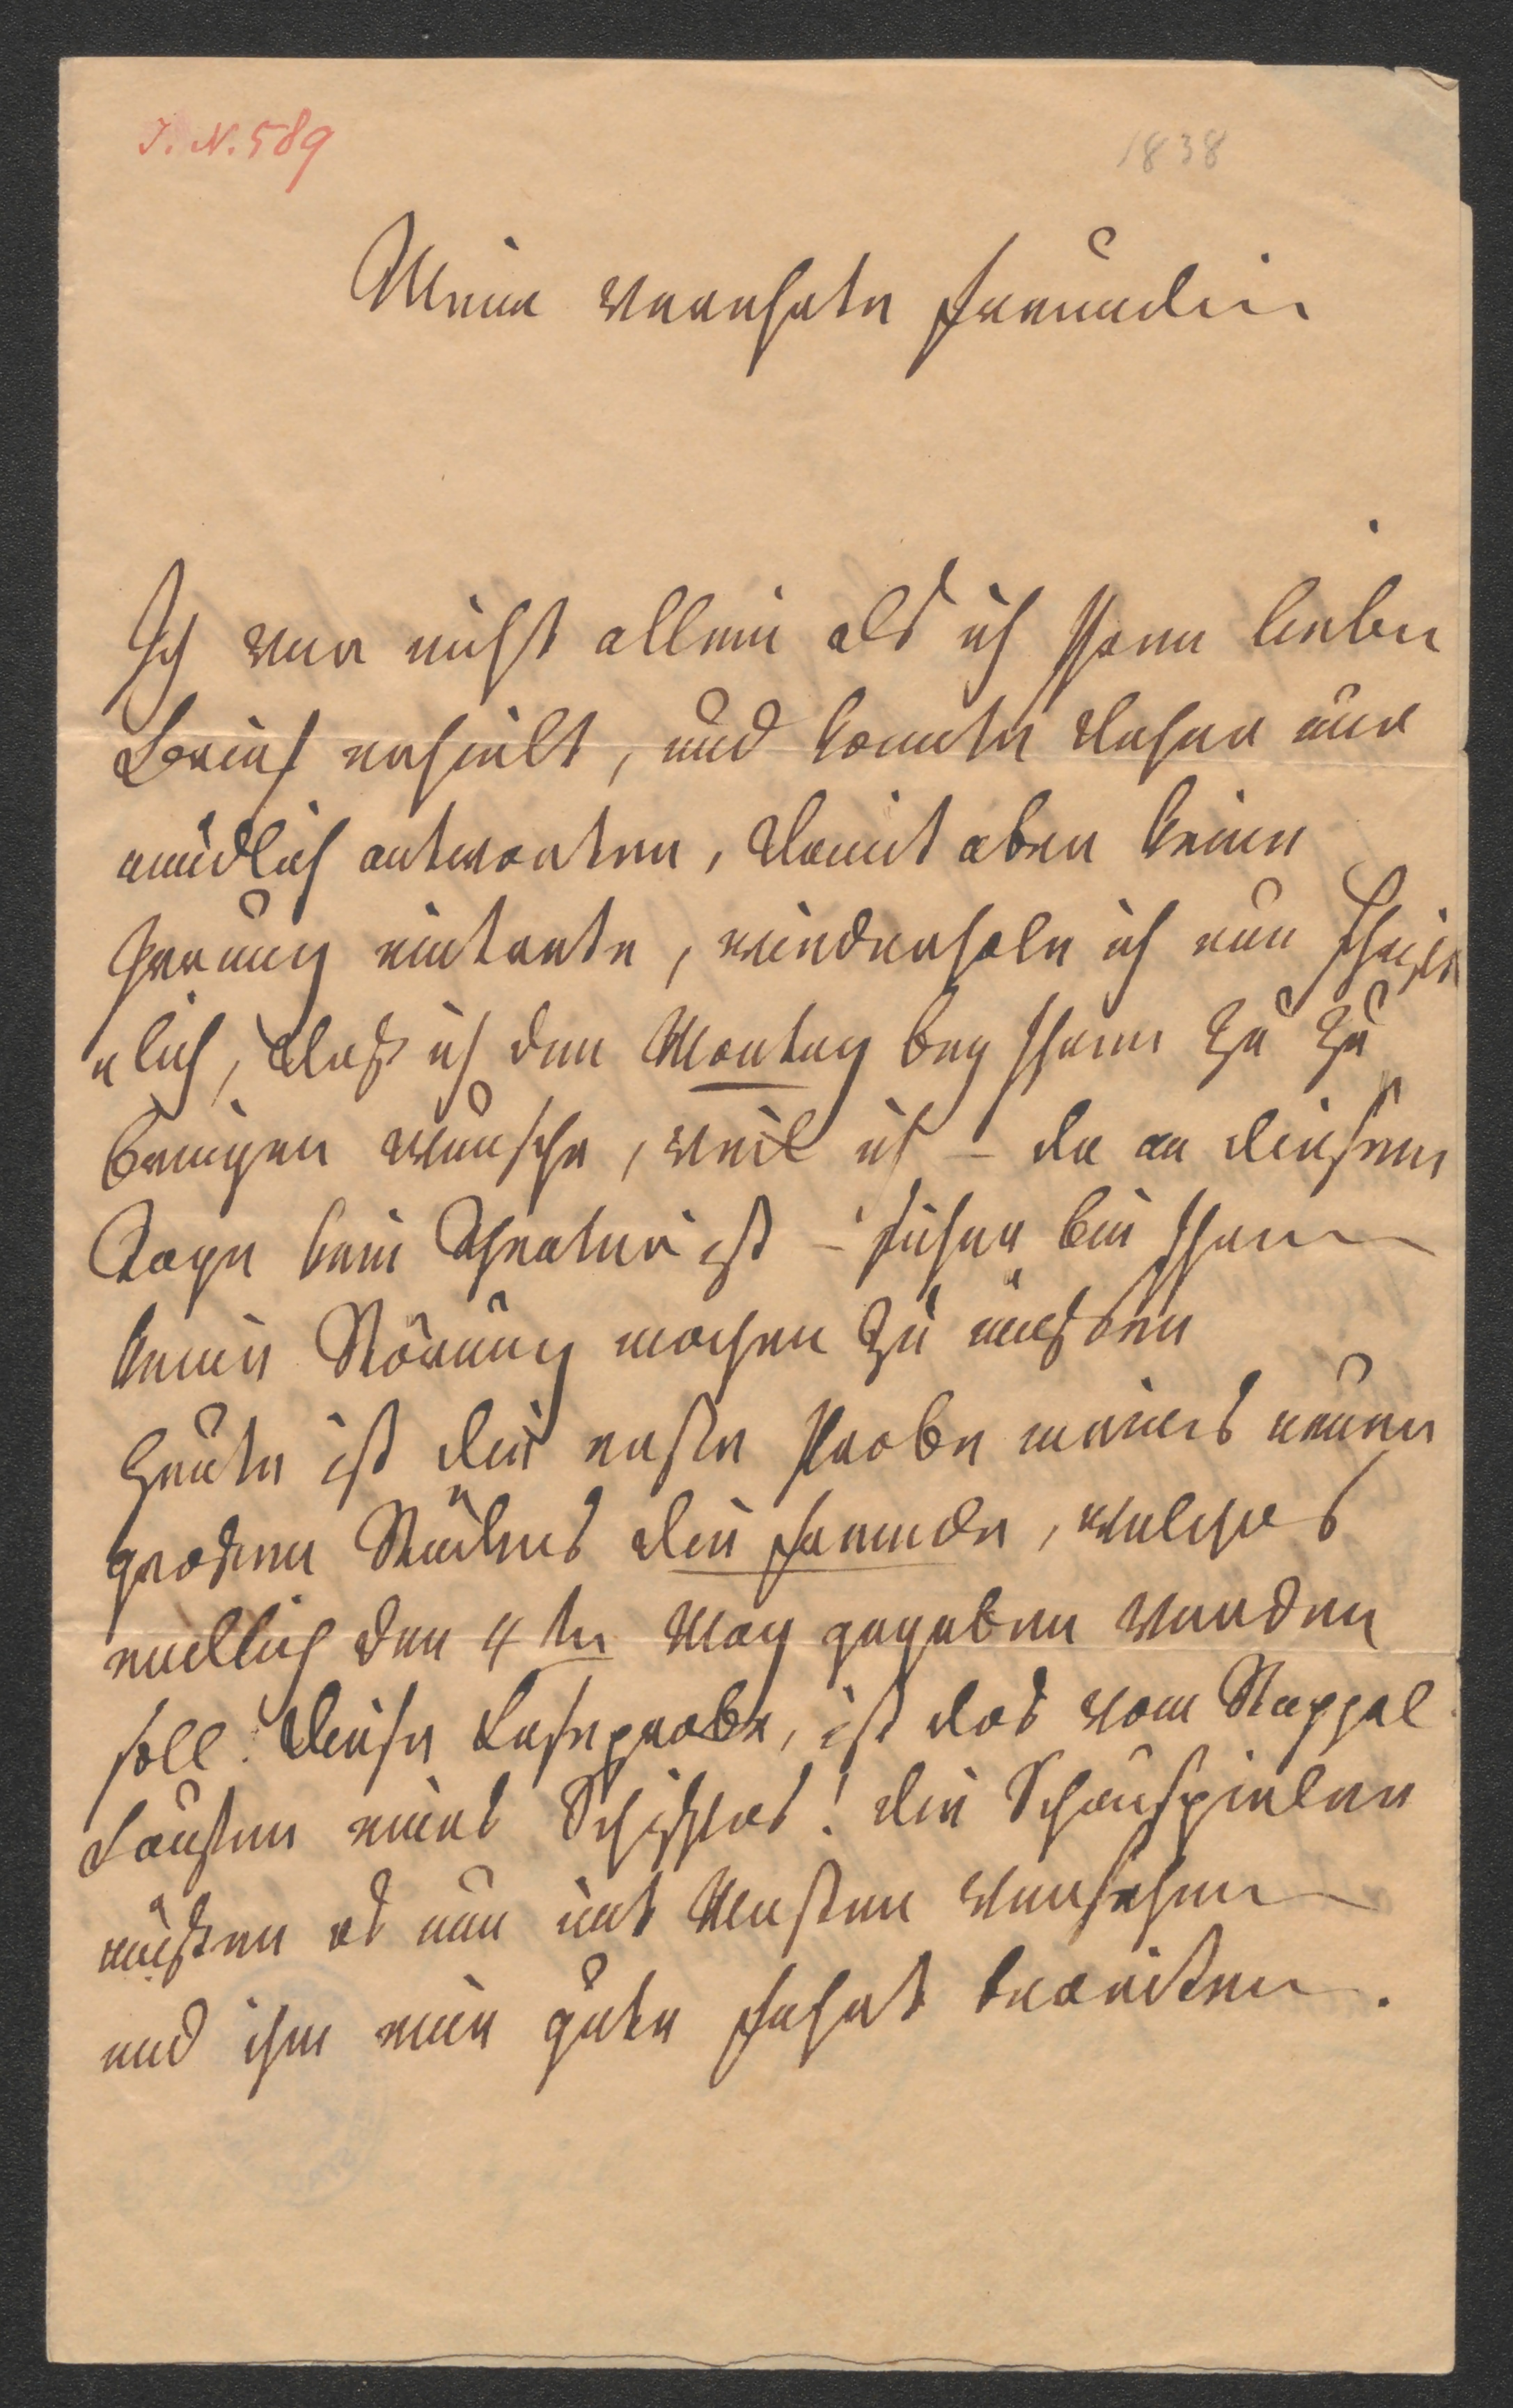 I. N. 589
1838
Meine verehrte Freundin
Ich war nicht allein als ich Ihren lieben
Brief erhielt, und konnte daher nur
mündlich antworten, damit aber keine
Irrung eintrete, wiederhole ich nun schrift
lich, daß ich den Montag bey Ihnen zu zu
bringen wünsche, weil ich – da an diesem
Tage kein Theater ist – sicher bin Ihnen
keine Störung machen zu müßen
Heute ist die erste Probe meines neuen
großen Stückes die Fremde, welches
endlich den 4ten May gegeben werden
soll. Diese Leseprobe, ist das vom Stappel
Laufen eines Schiffes! die Schauspieler
müßen es nun mit Masten versehen
und ihm eine gute Fahrt bereiten.